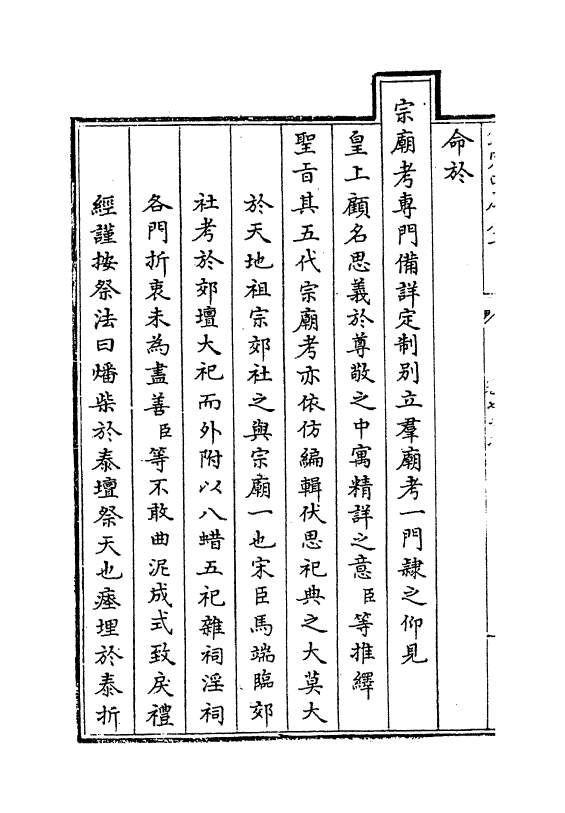 命於
宗廟考專門備詳定制别立羣廟考一門隷之仰見
皇上顧名思義於尊敬之中寓精詳之意臣等推繹
聖旨其五代宗廟考亦依仿編輯伏思祀典之大莫大
於天地祖宗郊社之與宗廟一也宋臣馬端臨郊
社考於郊壇大祀而外附以八蜡五祀雜祠淫祠
各門折衷未為盡善臣等不敢曲泥成式致戾禮
經謹按祭法曰燔柴於泰壇祭天也瘞埋於泰折